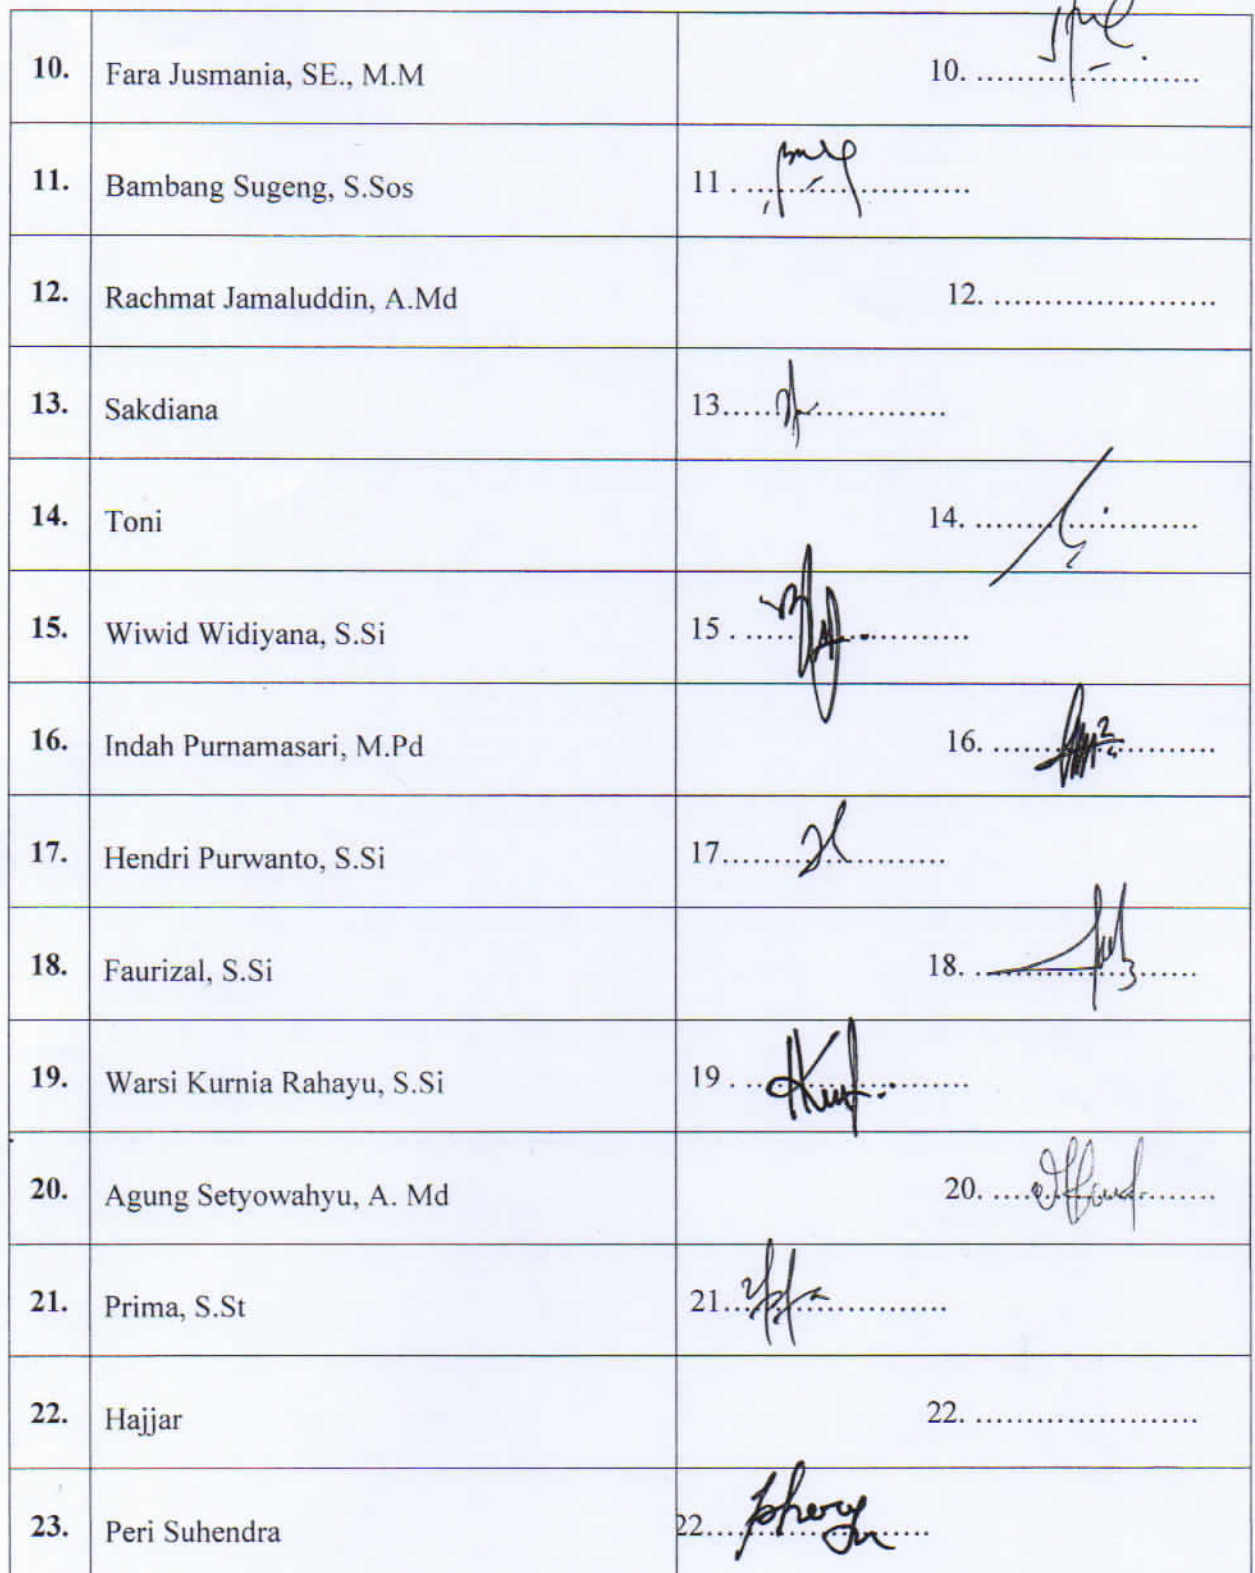 10. Fara Jusmania, SE., M.M 10. ........................
11. Bambang Sugeng, S.Sos 11 . ........................
12. Rachmat Jamaluddin, A.Md 12. ........................
13. Sakdiana 13........................
14. Toni 14. ........................
15. Wiwid Widiyana, S.Si 15 . ........................
16. Indah Purnamasari, M.Pd 16. ........................
17. Hendri Purwanto, S.Si 17........................
18. Faurizal, S.Si 18. ........................
19. Warsi Kurnia Rahayu, S.Si 19 . ........................
20. Agung Setyowahyu, A. Md 20. ........................
21. Prima, S.St 21........................
22. Hajjar 22. ........................
23. Peri Suhendra 22........................